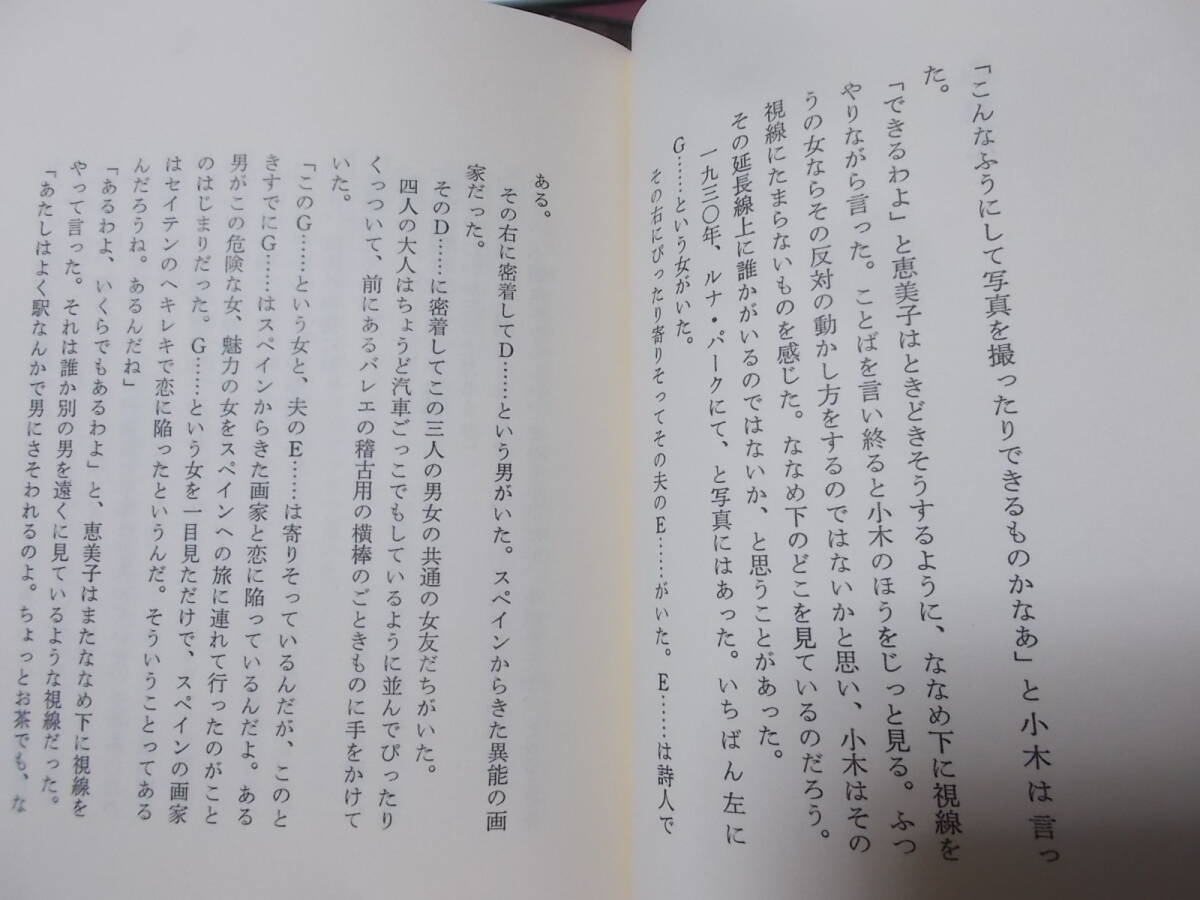 「こんなふうにして写真を撮ったりできるものかなあ」と小木は言っ
た。
「できるわよ」と恵美子はときどきそうするように、ななめ下に視線を
やりながら言った。ことばを言い終ると小木のほうをじっと見る。ふつ
うの女ならその反対の動かし方をするのではないかと思い、小木はその
視線にたまらないものを感じた。ななめ下のどこを見ているのだろう。
その延長線上に誰かがいるのではないか、と思うことがあった。
一九三〇年、ルナ・パークにて、と写真にはあった。いちばん左に
G……という女がいた。
その右にぴったり寄りそってその夫のE……がいた。E……は詩人で
ある。
その右に密着してD……という男がいた。スペインからきた異能の画
家だった。
そのD……に密着してこの三人の男女の共通の女友だちがいた。
四人の大人はちょうど汽車ごっこでもしているように並んでぴったり
くっついて、前にあるバレエの稽古用の横棒のごときものに手をかけて
いた。
「このG……という女と、夫のE……は寄りそっているんだが、このと
きすでにG……はスペインからきた画家と恋に陥っているんだよ。ある
男がこの危険な女、魅力の女をスペインへの旅に連れて行ったのがこと
のはじまりだった。G……という女を一目見ただけで、スペインの画家
はセイテンのヘキレキで恋に陥ったというんだ。そういうことってある
んだろうね。あるんだね」
「あるわよ、いくらでもあるわよ」と、恵美子はまたななめ下に視線を
やって言った。それは誰か別の男を遠くに見ているような視線だった。
「あたしはよく駅なんかで男にさそわれるのよ。ちょっとお茶でも、な